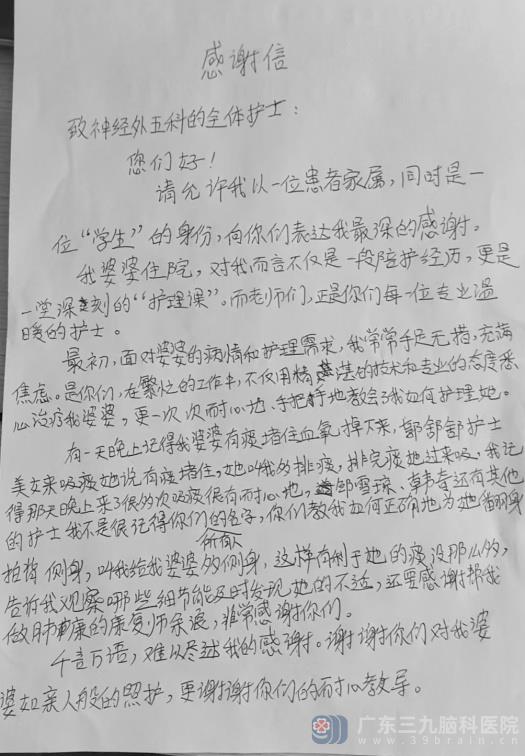 感谢信
致神经外五科的全体护士：
您们好！
请允许我以一位患者家属，同时是一
位“学生”的身份，向你们表达我最深的感谢。
我婆婆住院，对我而言不仅是一段陪护经历，更是
一堂深刻的“护理课”。而老师们，正是你们每一位专业温
暖的护士。
最初，面对婆婆的病情和护理需求，我常常手足无措，充满
焦虑。是你们，在繁忙的工作中，不仅用精湛的技术和专业的态度悉
心治疗我婆婆，更一次次耐心地、手把手地教会了我如何护理她。
有一天晚上记得我婆婆有痰堵住血氧掉下来，郭
美女来吸痰她说有痰堵住，她叫我多排痰，排完痰她过来吸、我记
得那天晚上来了很多次吸痰很有耐心地，邹雪琼、还有其他
的护士我不是很记得你们的名字，你们教我如何正确地为她翻身
拍背侧身，叫我给我婆婆多侧身，这样有利于她的痰没那么多，
告诉我观察哪些细节能及时发现她的不适，还要感谢帮我
做肺康的康复师余浪，非常感谢你们。
千言万语，难以尽述我的感谢。谢谢你们对我婆
婆如亲人般的照护，更谢谢你们的耐心教导。
广东三九脑科医院
www.39brain.com